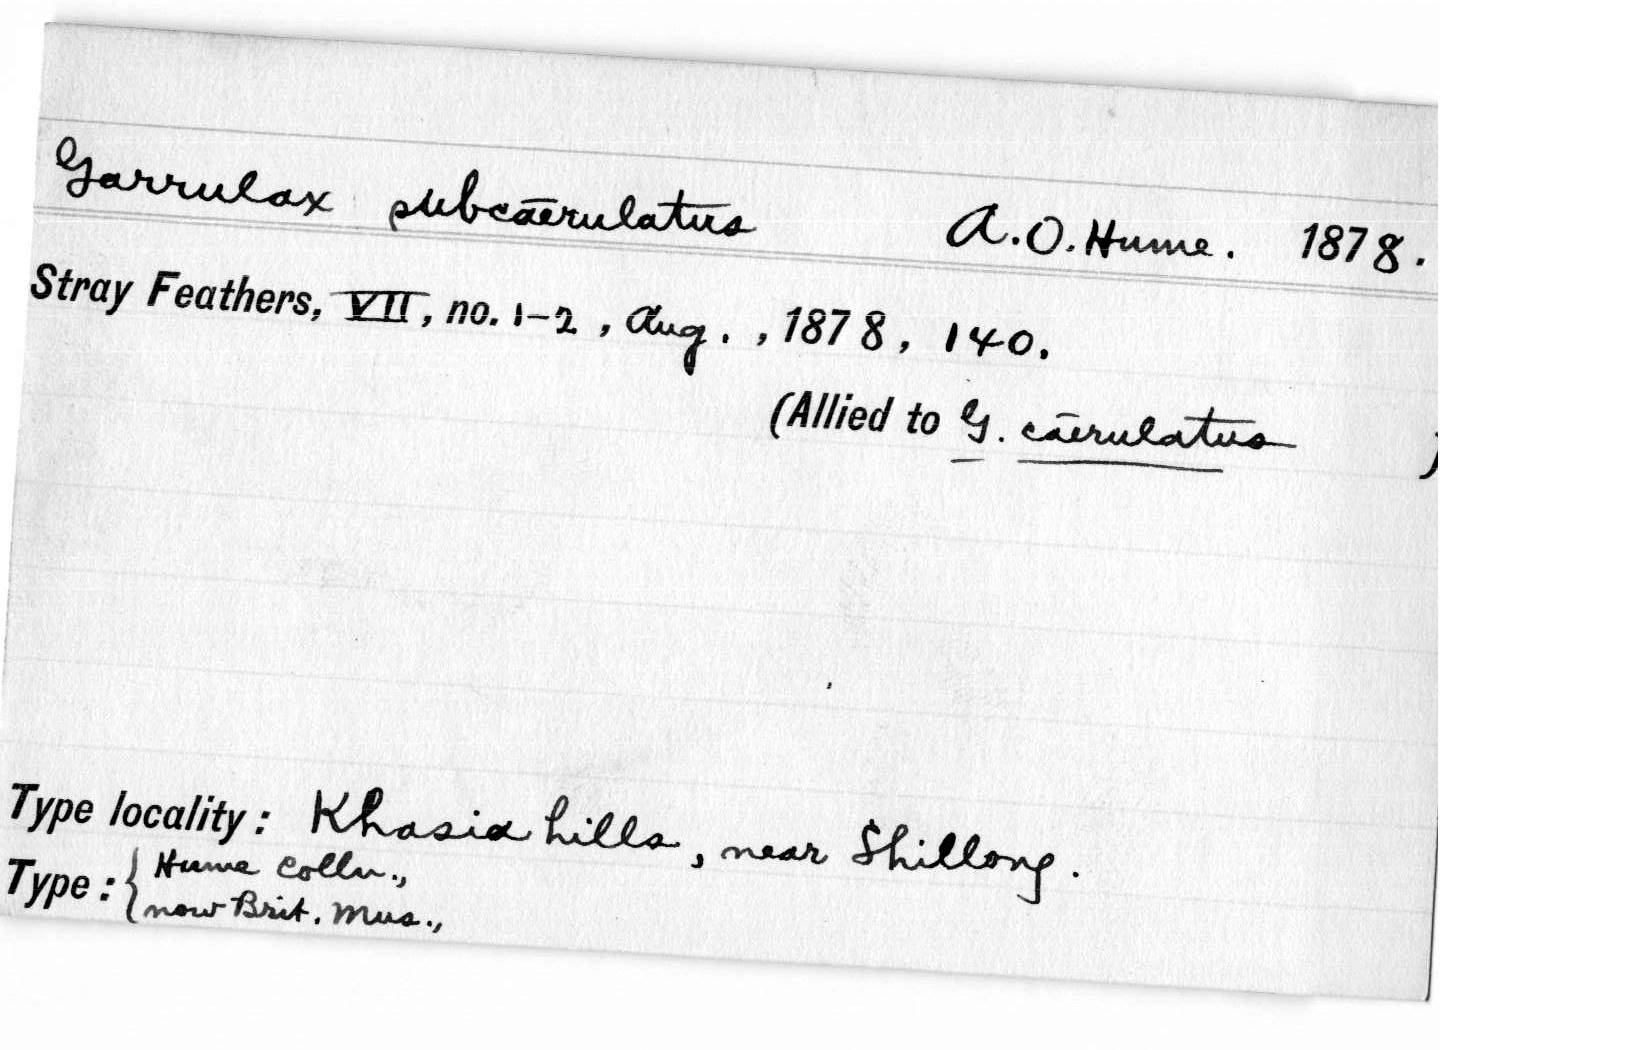 Garrulax subcaerulatus A.O. Hume. 1878.
Stray Feathers, VII, no. 1-2, Aug., 1878, 140.
(Allied to G. caerulatus )
Type locality: Khasia hills, near Shillong.
Type: { Hume Colln.,
now Brit. Mus.,